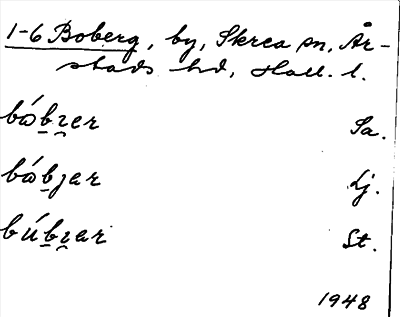 1-6 Boberg, by, Skrea sn, År-
stads hd, Hall. l.
bɷ́b̠ɪ̯er Sa.
bɷ́b̠jar Lj.
búb̠ɪ̯ar St.
1948